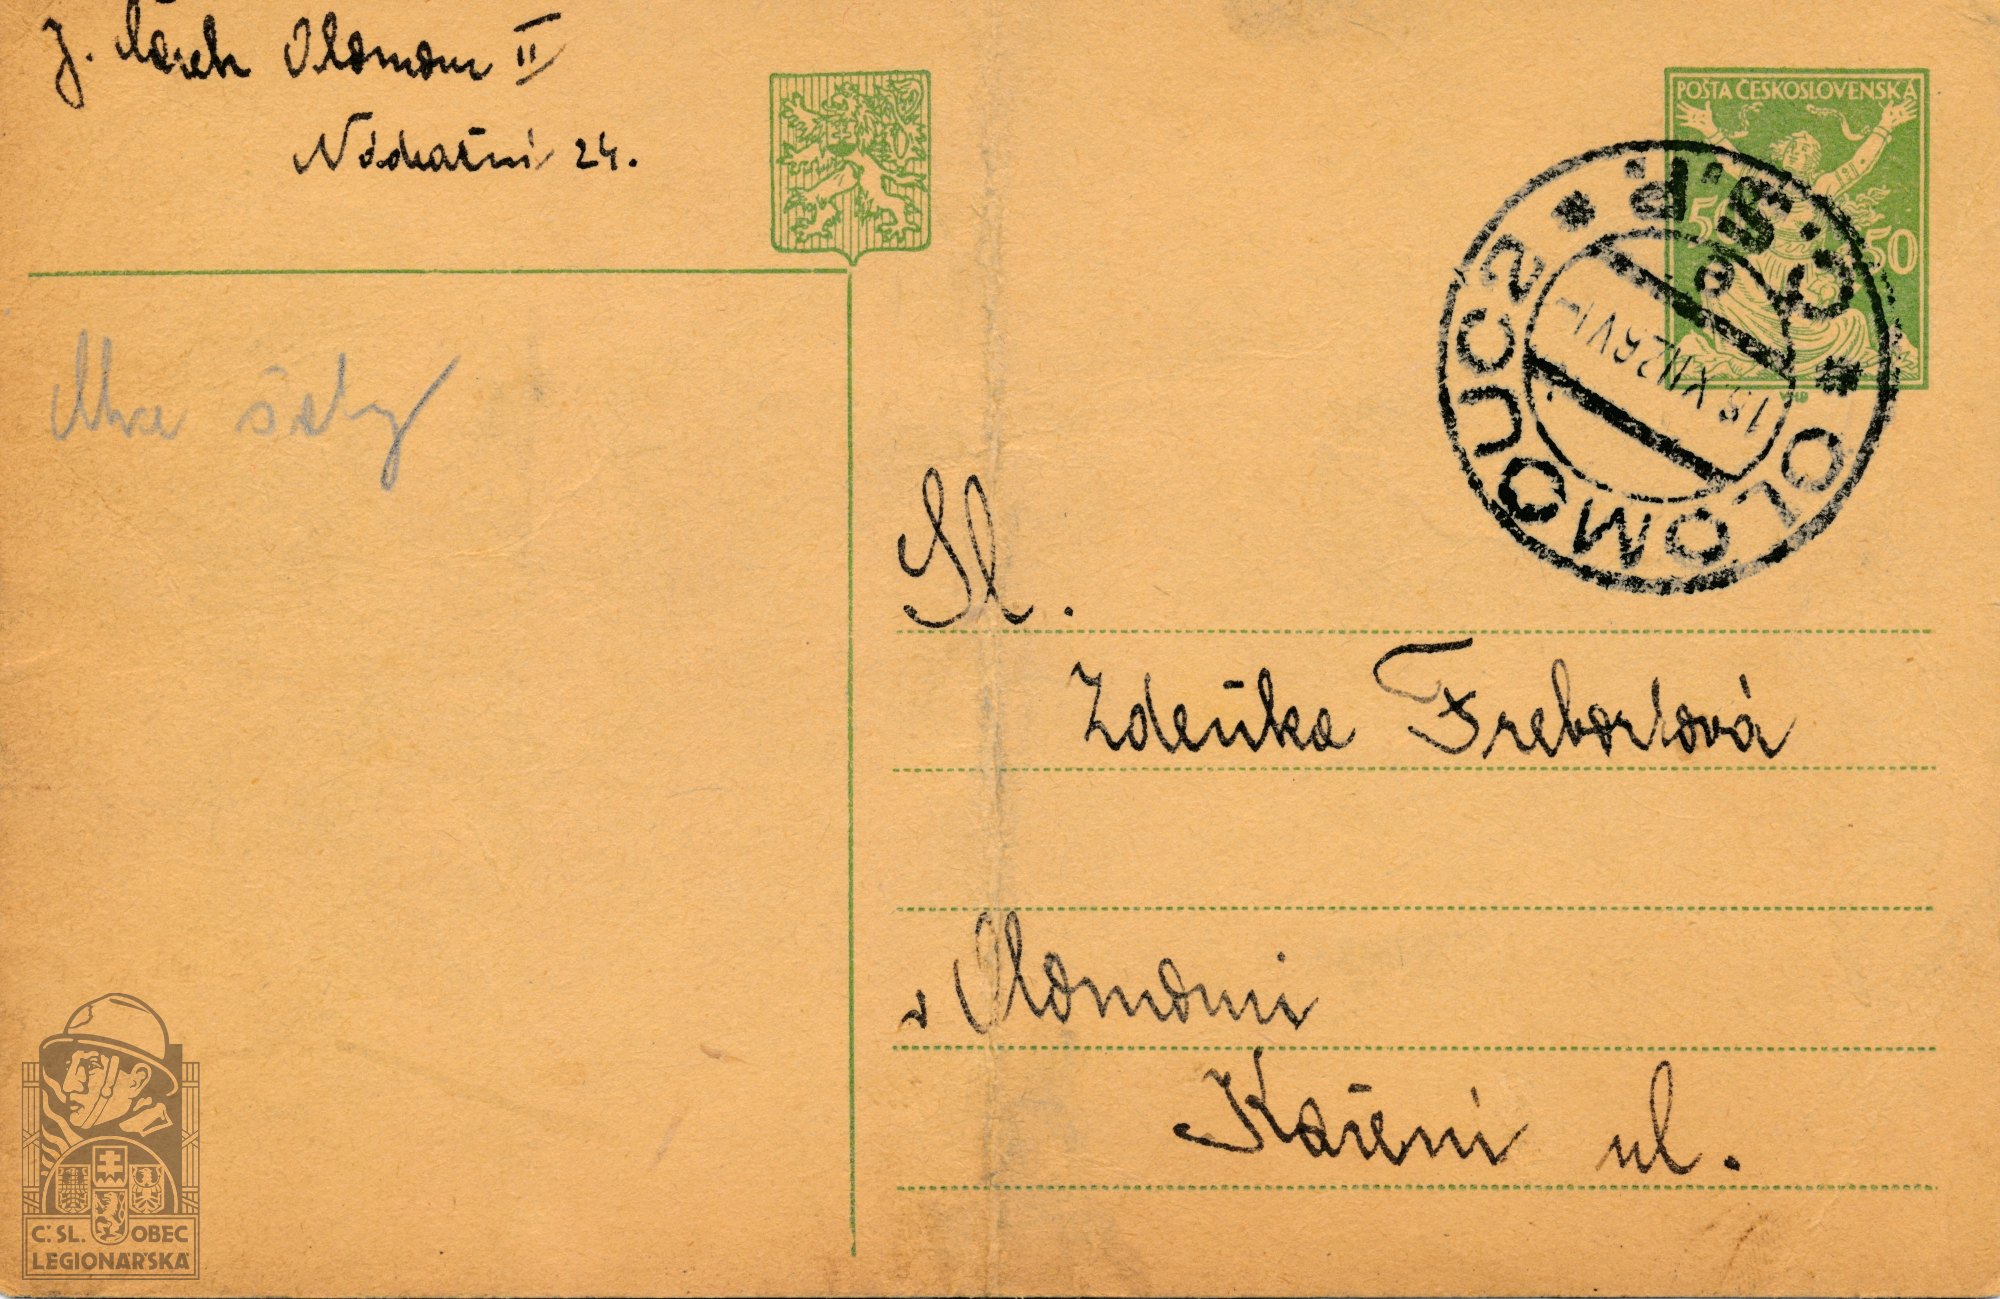 J. Marek Olomouc II
Nádražní 24.
POŠTA ČESKOSLOVENSKÁ
50 50
* OLOMOUC 2 * Č.S.P.
18.XII.26 VI-
Sl.
Zdeňka Frebortová
v Olomouci
Kateřní ul.
Č.SL. OBEC
LEGIONÁŘSKÁ